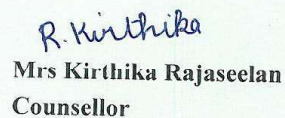 R. Kirthika
Mrs Kirthika Rajaseelan
Counsellor